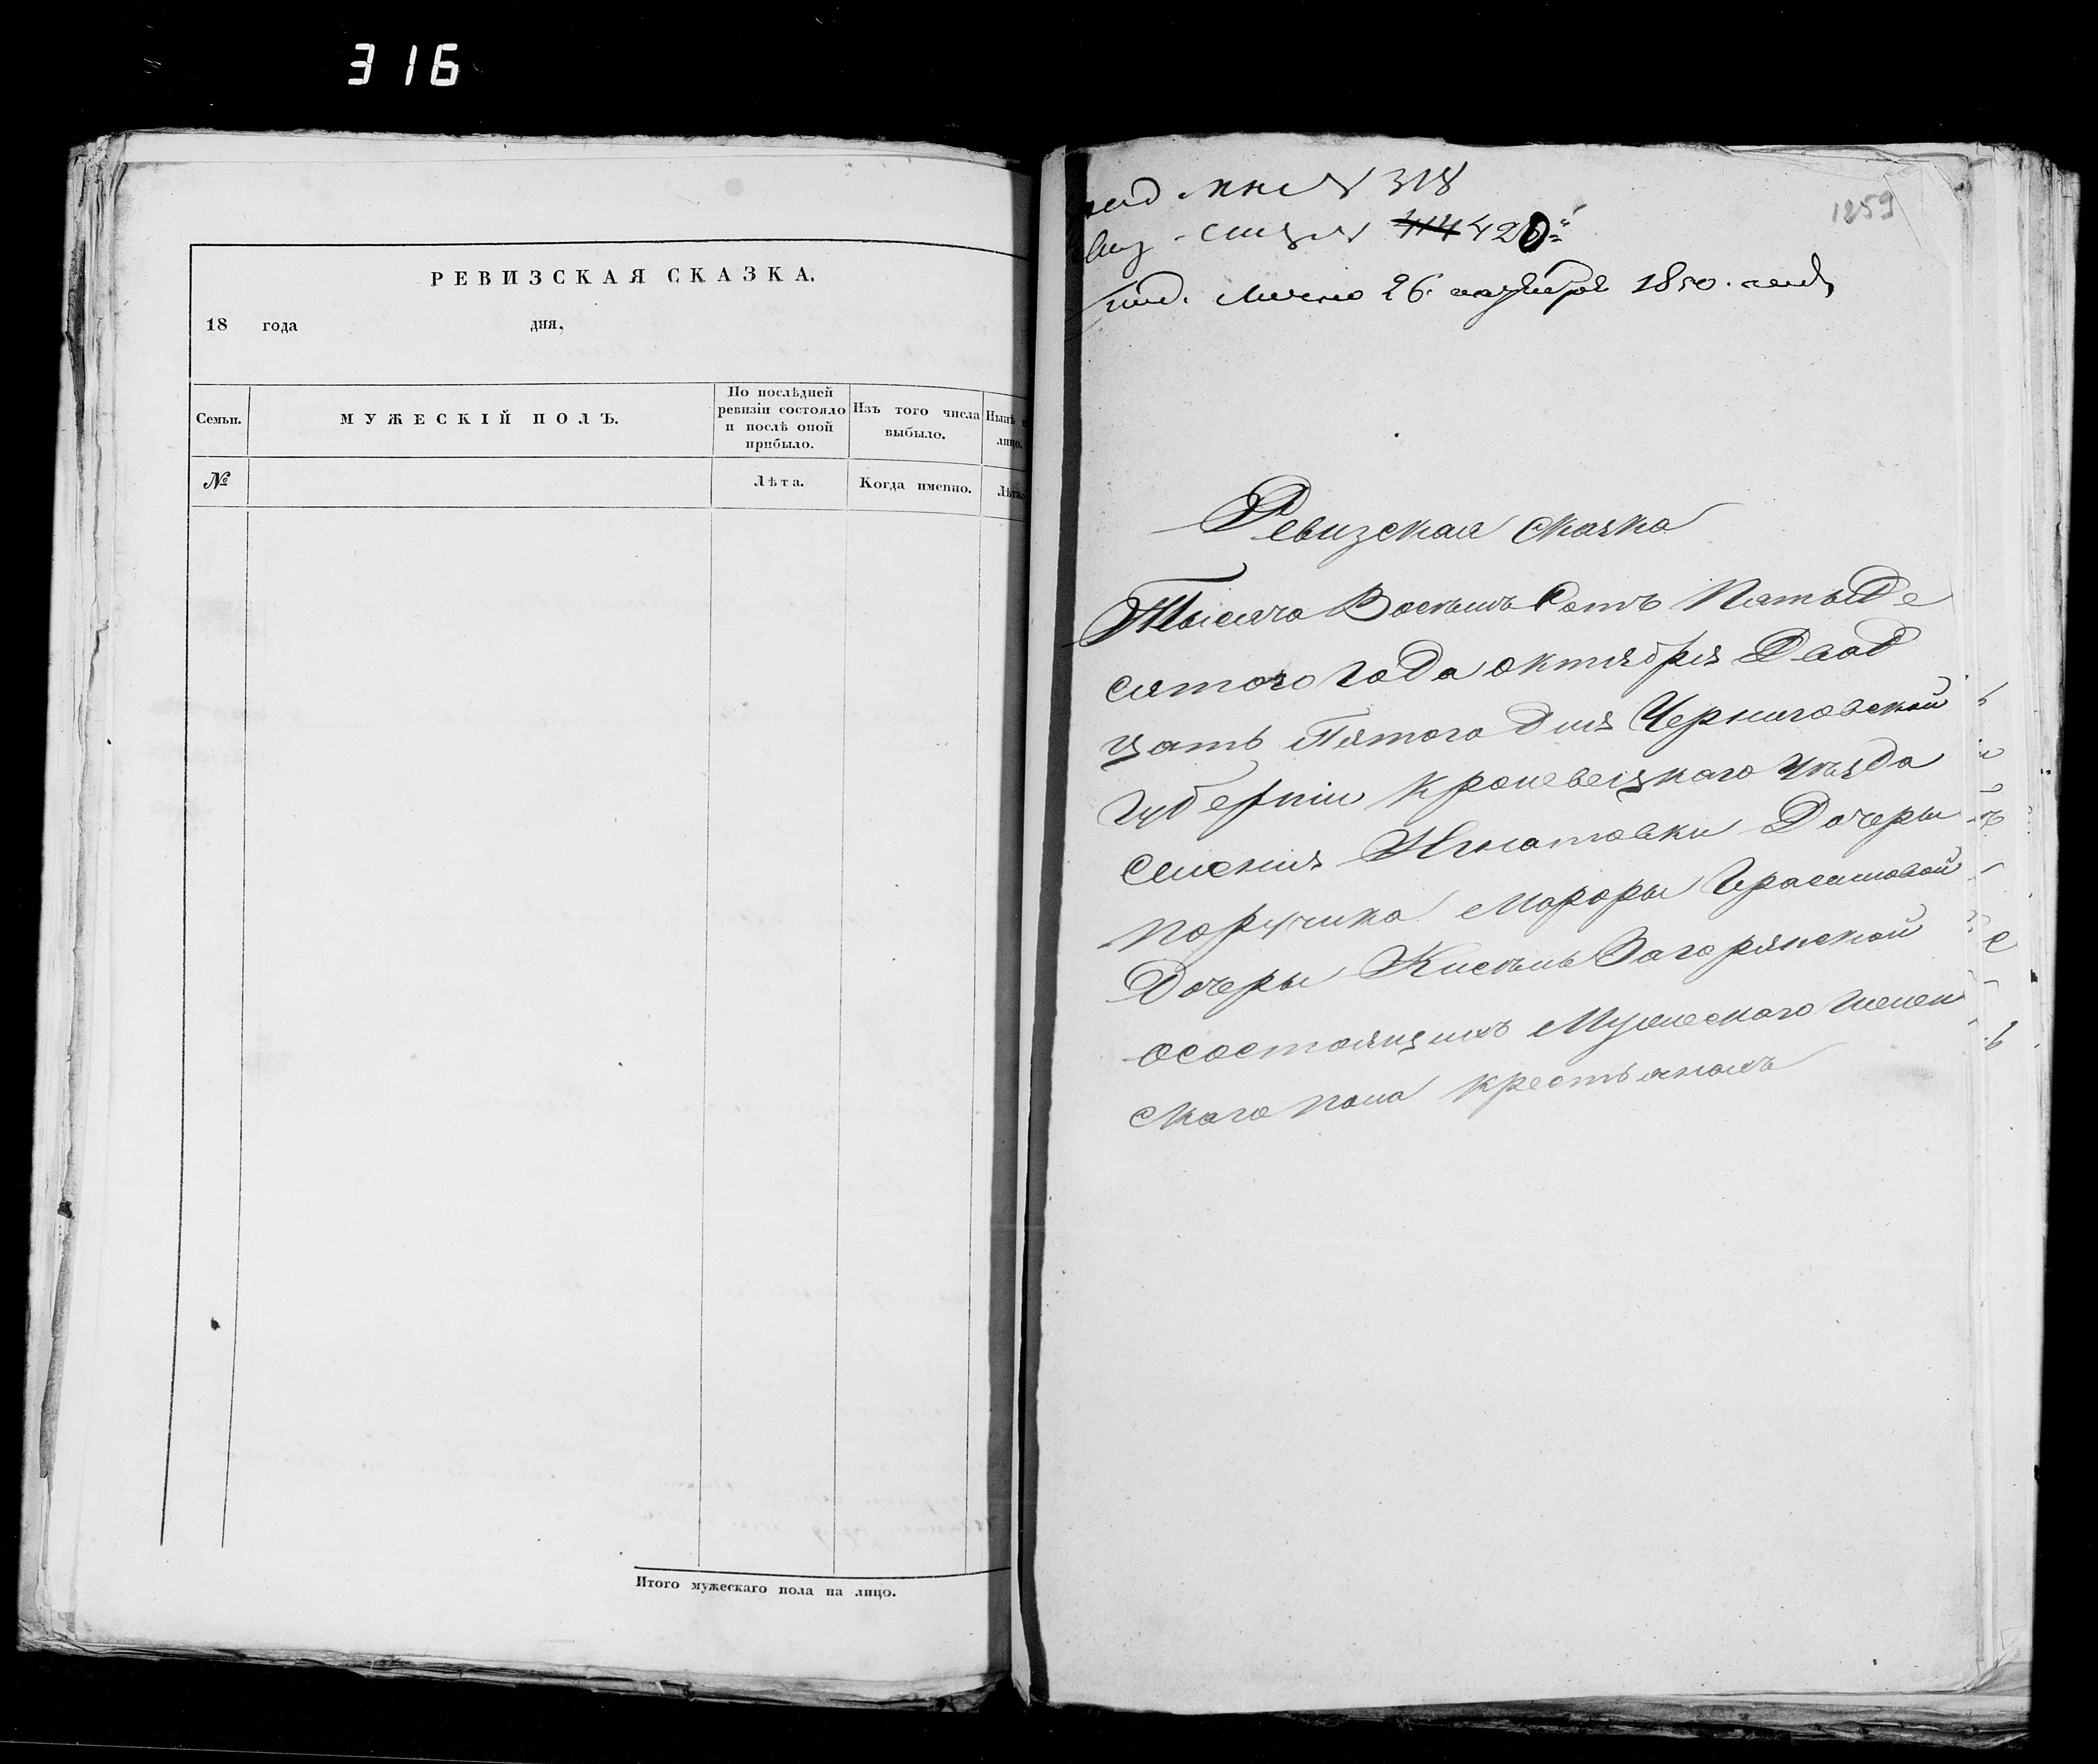 316
РЕВИЗСКАЯ СКАЗКА.
18 года дня,
Семьи.
МУЖЕСКІЙ ПОЛЪ.
По послѣдней
ревизіи состояло
и послѣ оной
прибыло.
Изъ того числа
выбыло.
Нынѣ
лицо.
№
Лѣта.
Когда именно.
Лѣта
Итого мужескаго пола на лицо.
1259
318
414 420
26 октября 1850.
Ревизская сказка
Тысяча Восемь Сотъ Пятьде
сятого года октября Двад
цать Пятого дня Черниговской
губерніи Кролевецкого уѣзда
селенія Игнатовки Дочеры
поручика Марфы Герасимовой
Дочеры Кисель Загорянской
осостоящихъ Мужескаго женск
скаго пола крестьянахъ